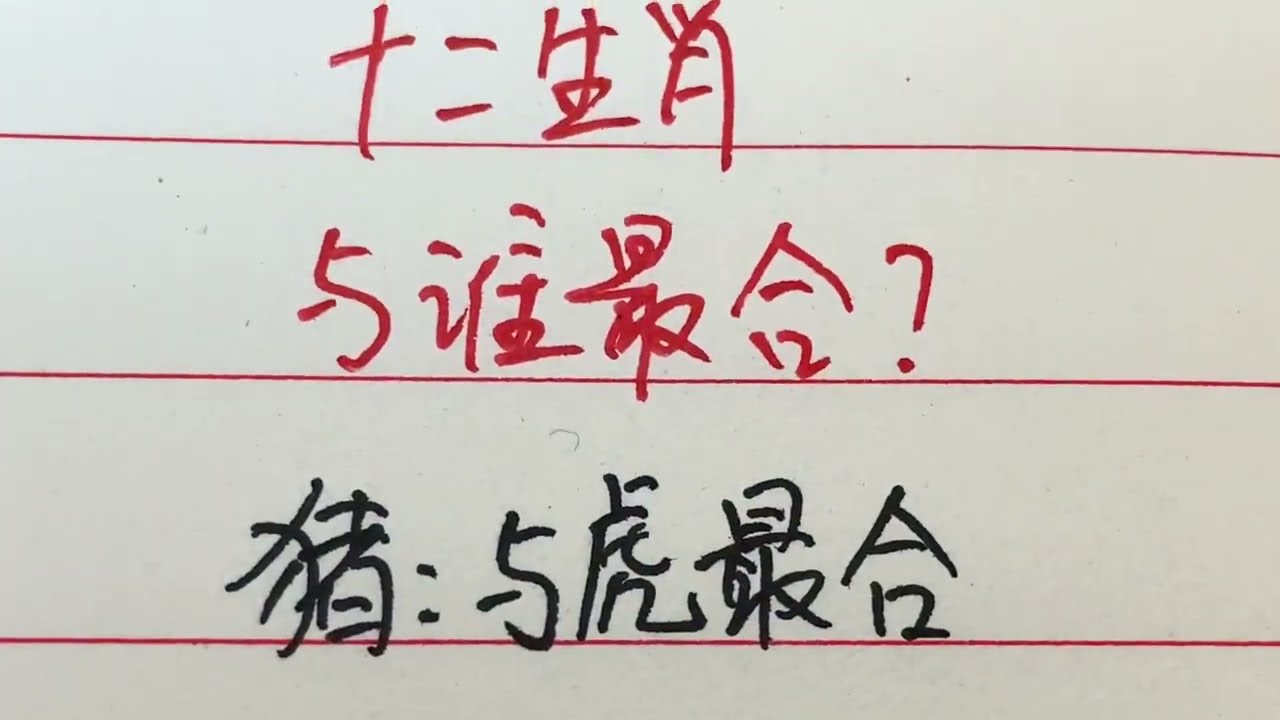 十二生肖
与谁最合?
猪:与虎最合